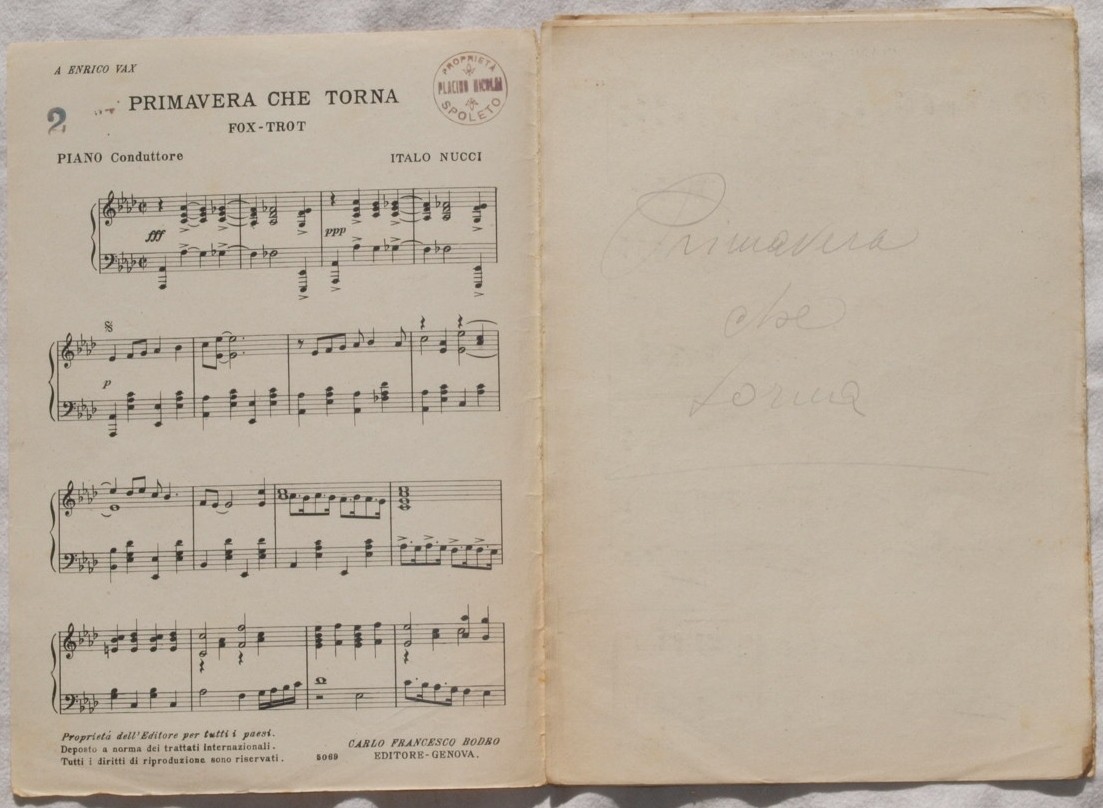 A ENRICO VAX
2
PRIMAVERA CHE TORNA
FOX-TROT
PROPRIETÀ
SPOLETO
PIANO Conduttore
ITALO NUCCI
fff
ppp
p
Proprietà dell'Editore per tutti i paesi.
Deposto a norma dei trattati internazionali.
Tutti i diritti di riproduzione sono riservati.
5069
CARLO FRANCESCO BODRO
EDITORE-GENOVA.
Primavera
che
torna